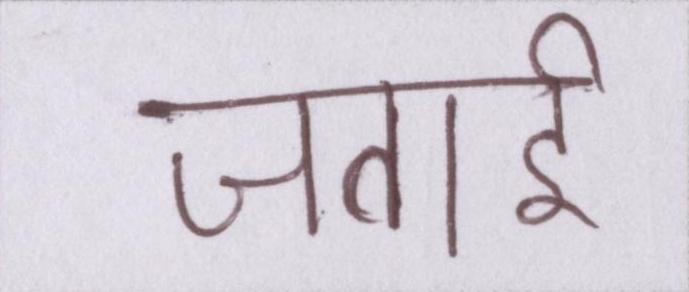 जताई